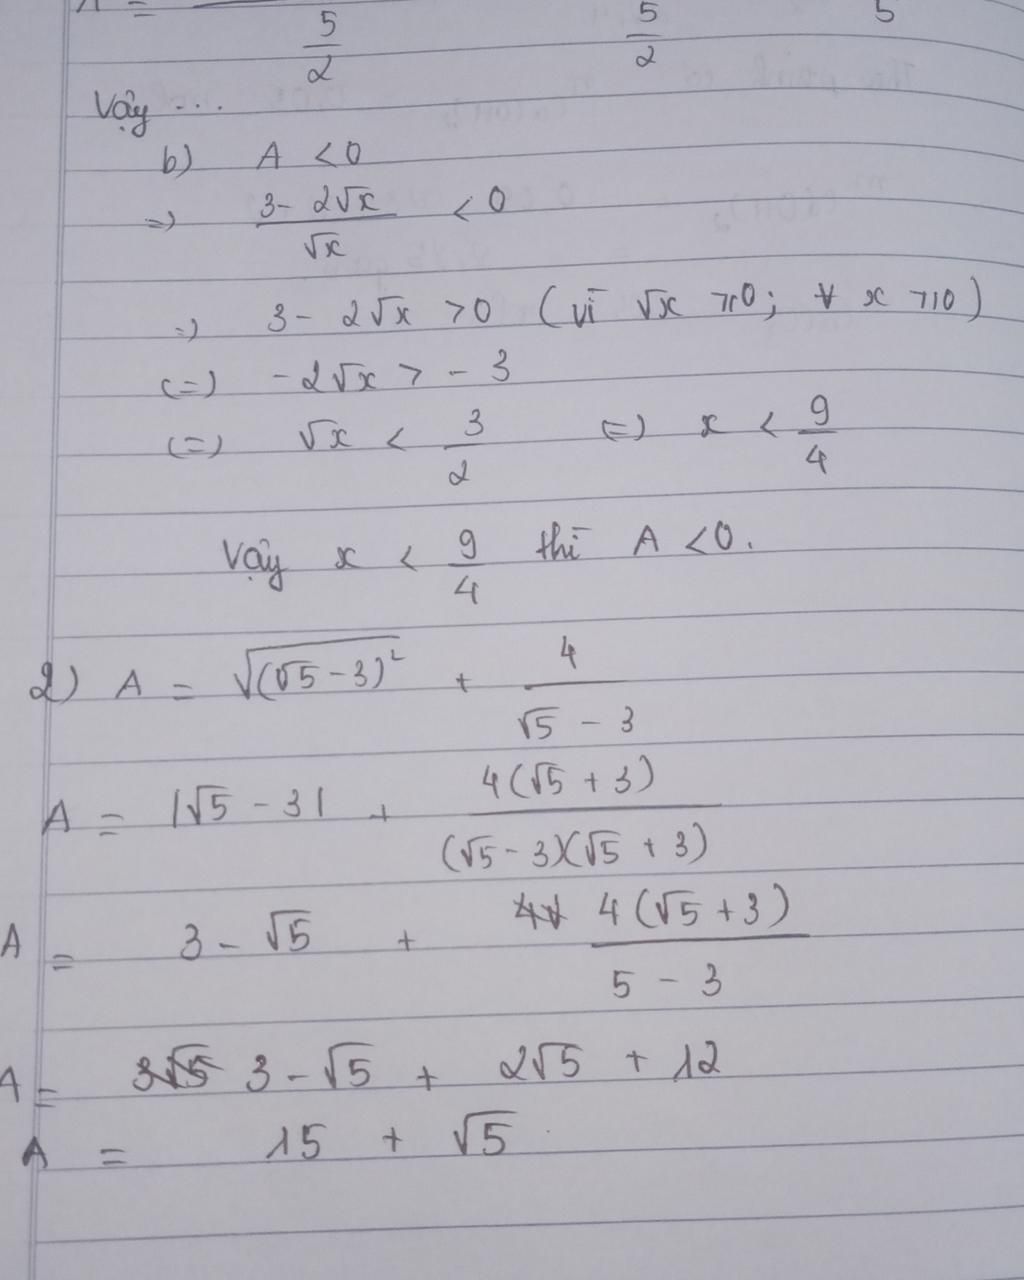 A = 5/2 5/2 5
Vậy ...
b) A < 0
=) (3 - 2√x)/√x < 0
=) 3 - 2√x > 0 (vì √x ≥ 0; ∀ x ≥ 0)
(=) -2√x > -3
(=) √x < 3/2 (=) x < 9/4
Vậy x < 9/4 thì A < 0.
2) A = √((√5 - 3)²) + 4/(√5 - 3)
A = |√5 - 3| + 4(√5 + 3)/((√5 - 3)(√5 + 3))
A = 3 - √5 + 4(√5 + 3)/(5 - 3)
A = 3 - √5 + 2√5 + 12
A = 15 + √5